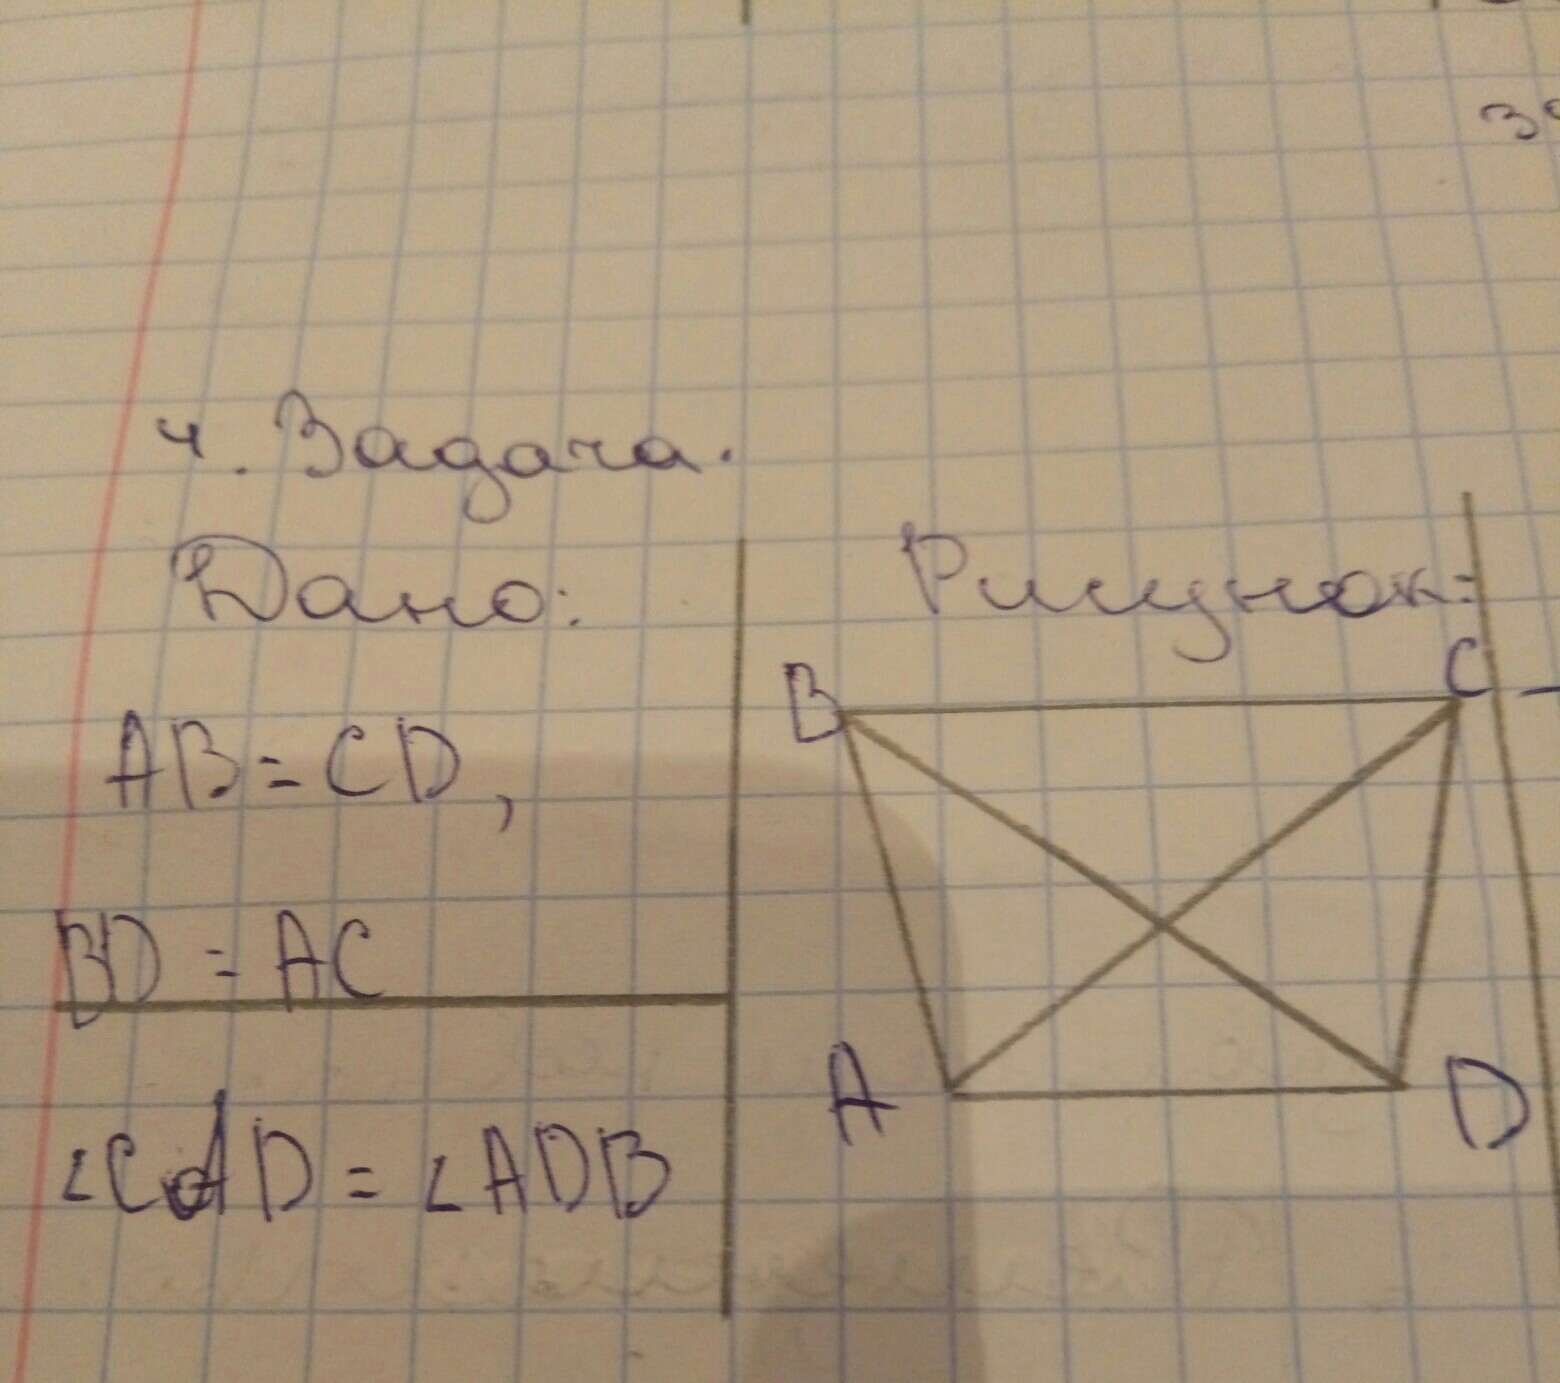 4. Задача.
Дано:
AB = CD,
BD = AC
∠CAD = ∠ADB
Рисунок:
B
C
A
D